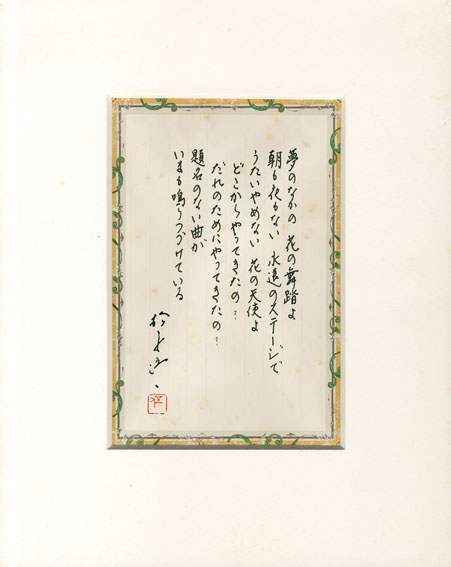 夢のなかの 花の舞踏よ
朝も夜もない 永遠のステージで
うたいやめない 花の天使よ
どこからやってきたの…
だれのためにやってきたの…
題名のない曲が
いまも鳴りつづけている